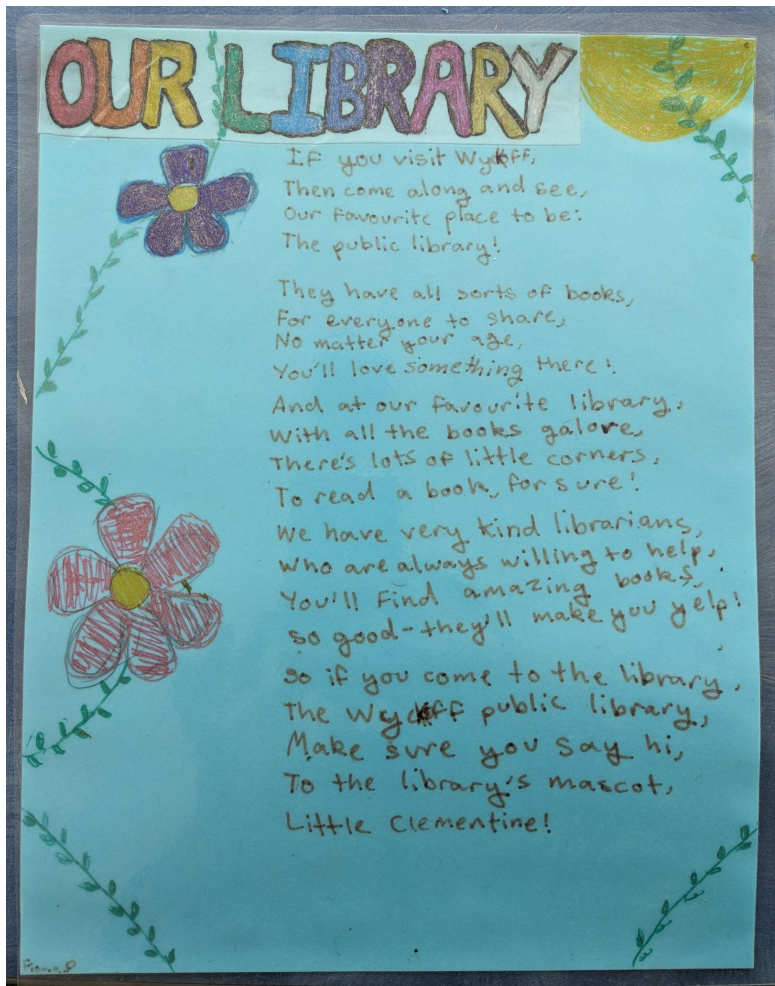 OUR LIBRARY
If you visit Wyckoff,
Then come along and see,
Our favourite place to be:
The public library!
They have all sorts of books,
For everyone to share,
No matter your age,
You'll love something there!
And at our favourite library,
With all the books galore,
There's lots of little corners,
To read a book, for sure!
We have very kind librarians,
Who are always willing to help,
You'll find amazing books,
So good-they'll make you yelp!
So if you come to the library,
The Wyckoff public library,
Make sure you say hi,
To the library's mascot,
Little Clementine!